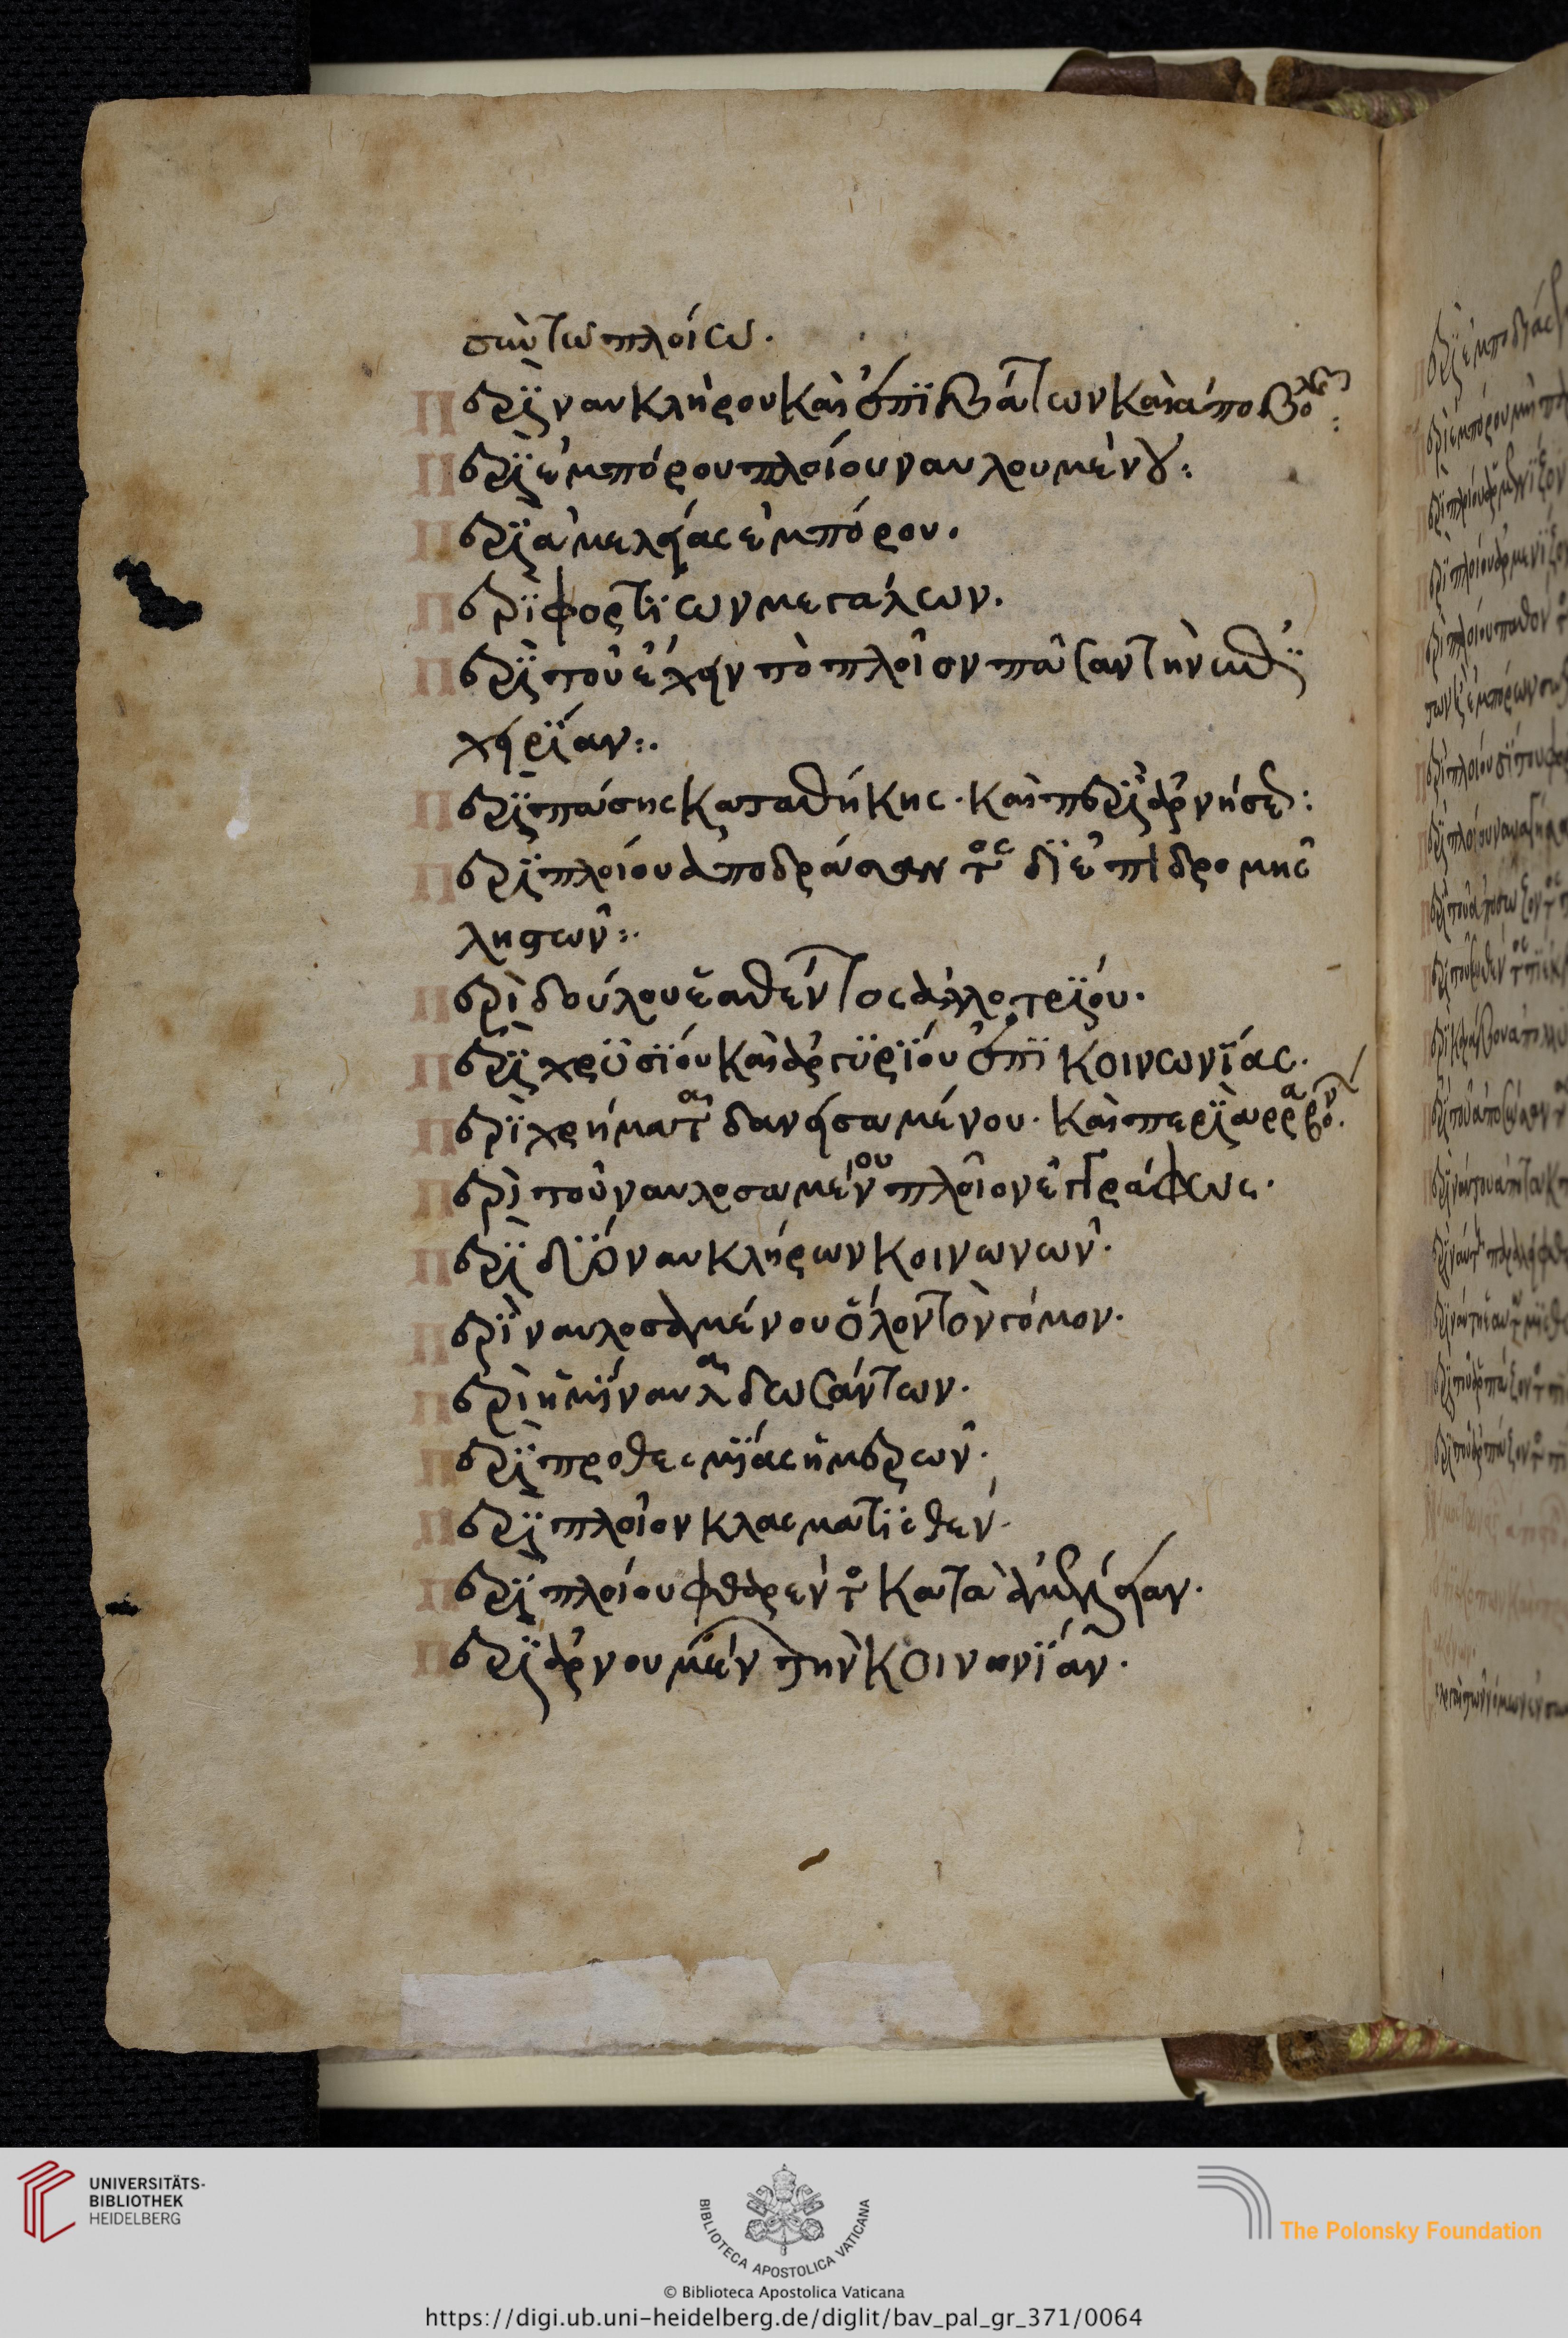 σὺν τῶ πλοίω.
Περῒ ναυκλήρου καὶ ἐπϊβάτων καὶ ἀποβολῆς:
Περῒ ἐμπόρου πλοίου ναυλουμένου:
Περῒ ἀμελείας ἐμπόρου.
Περῒ φορτΐων μεγάλων.
Περῒ τοῦ ἔχειν τὸ πλοῖον πᾶσαν τὴν εὐθϋ
χείρΐαν:.
Περῒ πάσης καταθήκης. καὶ περῒ ἀρνήσεως:
Περῒ πλοίου ἀποδράσαντος δϊ ἐπιδρομῆς
ληστῶν:.
Περὶ δούλου ἐαθέντος ἀλλοτρΐου.
Περῒ χρϋσΐου καὶ ἀργϋρΐου ἐπῒ κοινωνΐας.
Περῒ χρήματα δανεισαμένου. καὶ περῒ ἀρραβόν.
Περὶ τοῦ ναυλοσαμένου πλοῖον ἐγγράφως.
Περῒ δύο ναυκλήρων κοινωνῶν.
Περῒ ναυλοσαμένου ὅλον τὸν γόμον.
Περὶ ἡμΐναυλα δωσάντων.
Περῒ προθεσμΐας ἡμερῶν.
Περῒ πλοῖον κλασματϊσθέν.
Περῒ πλοίου φθαρέντος κατὰ
Περῒ ἀρνουμέν τὴν κοινονΐαν.
UNIVERSITÄTS-
BIBLIOTHEK
HEIDELBERG
BIBLIOTECA APOSTOLICA VATICANA
The Polonsky Foundation
© Biblioteca Apostolica Vaticana
https://digi.ub.uni-heidelberg.de/diglit/bav_pal_gr_371/0064